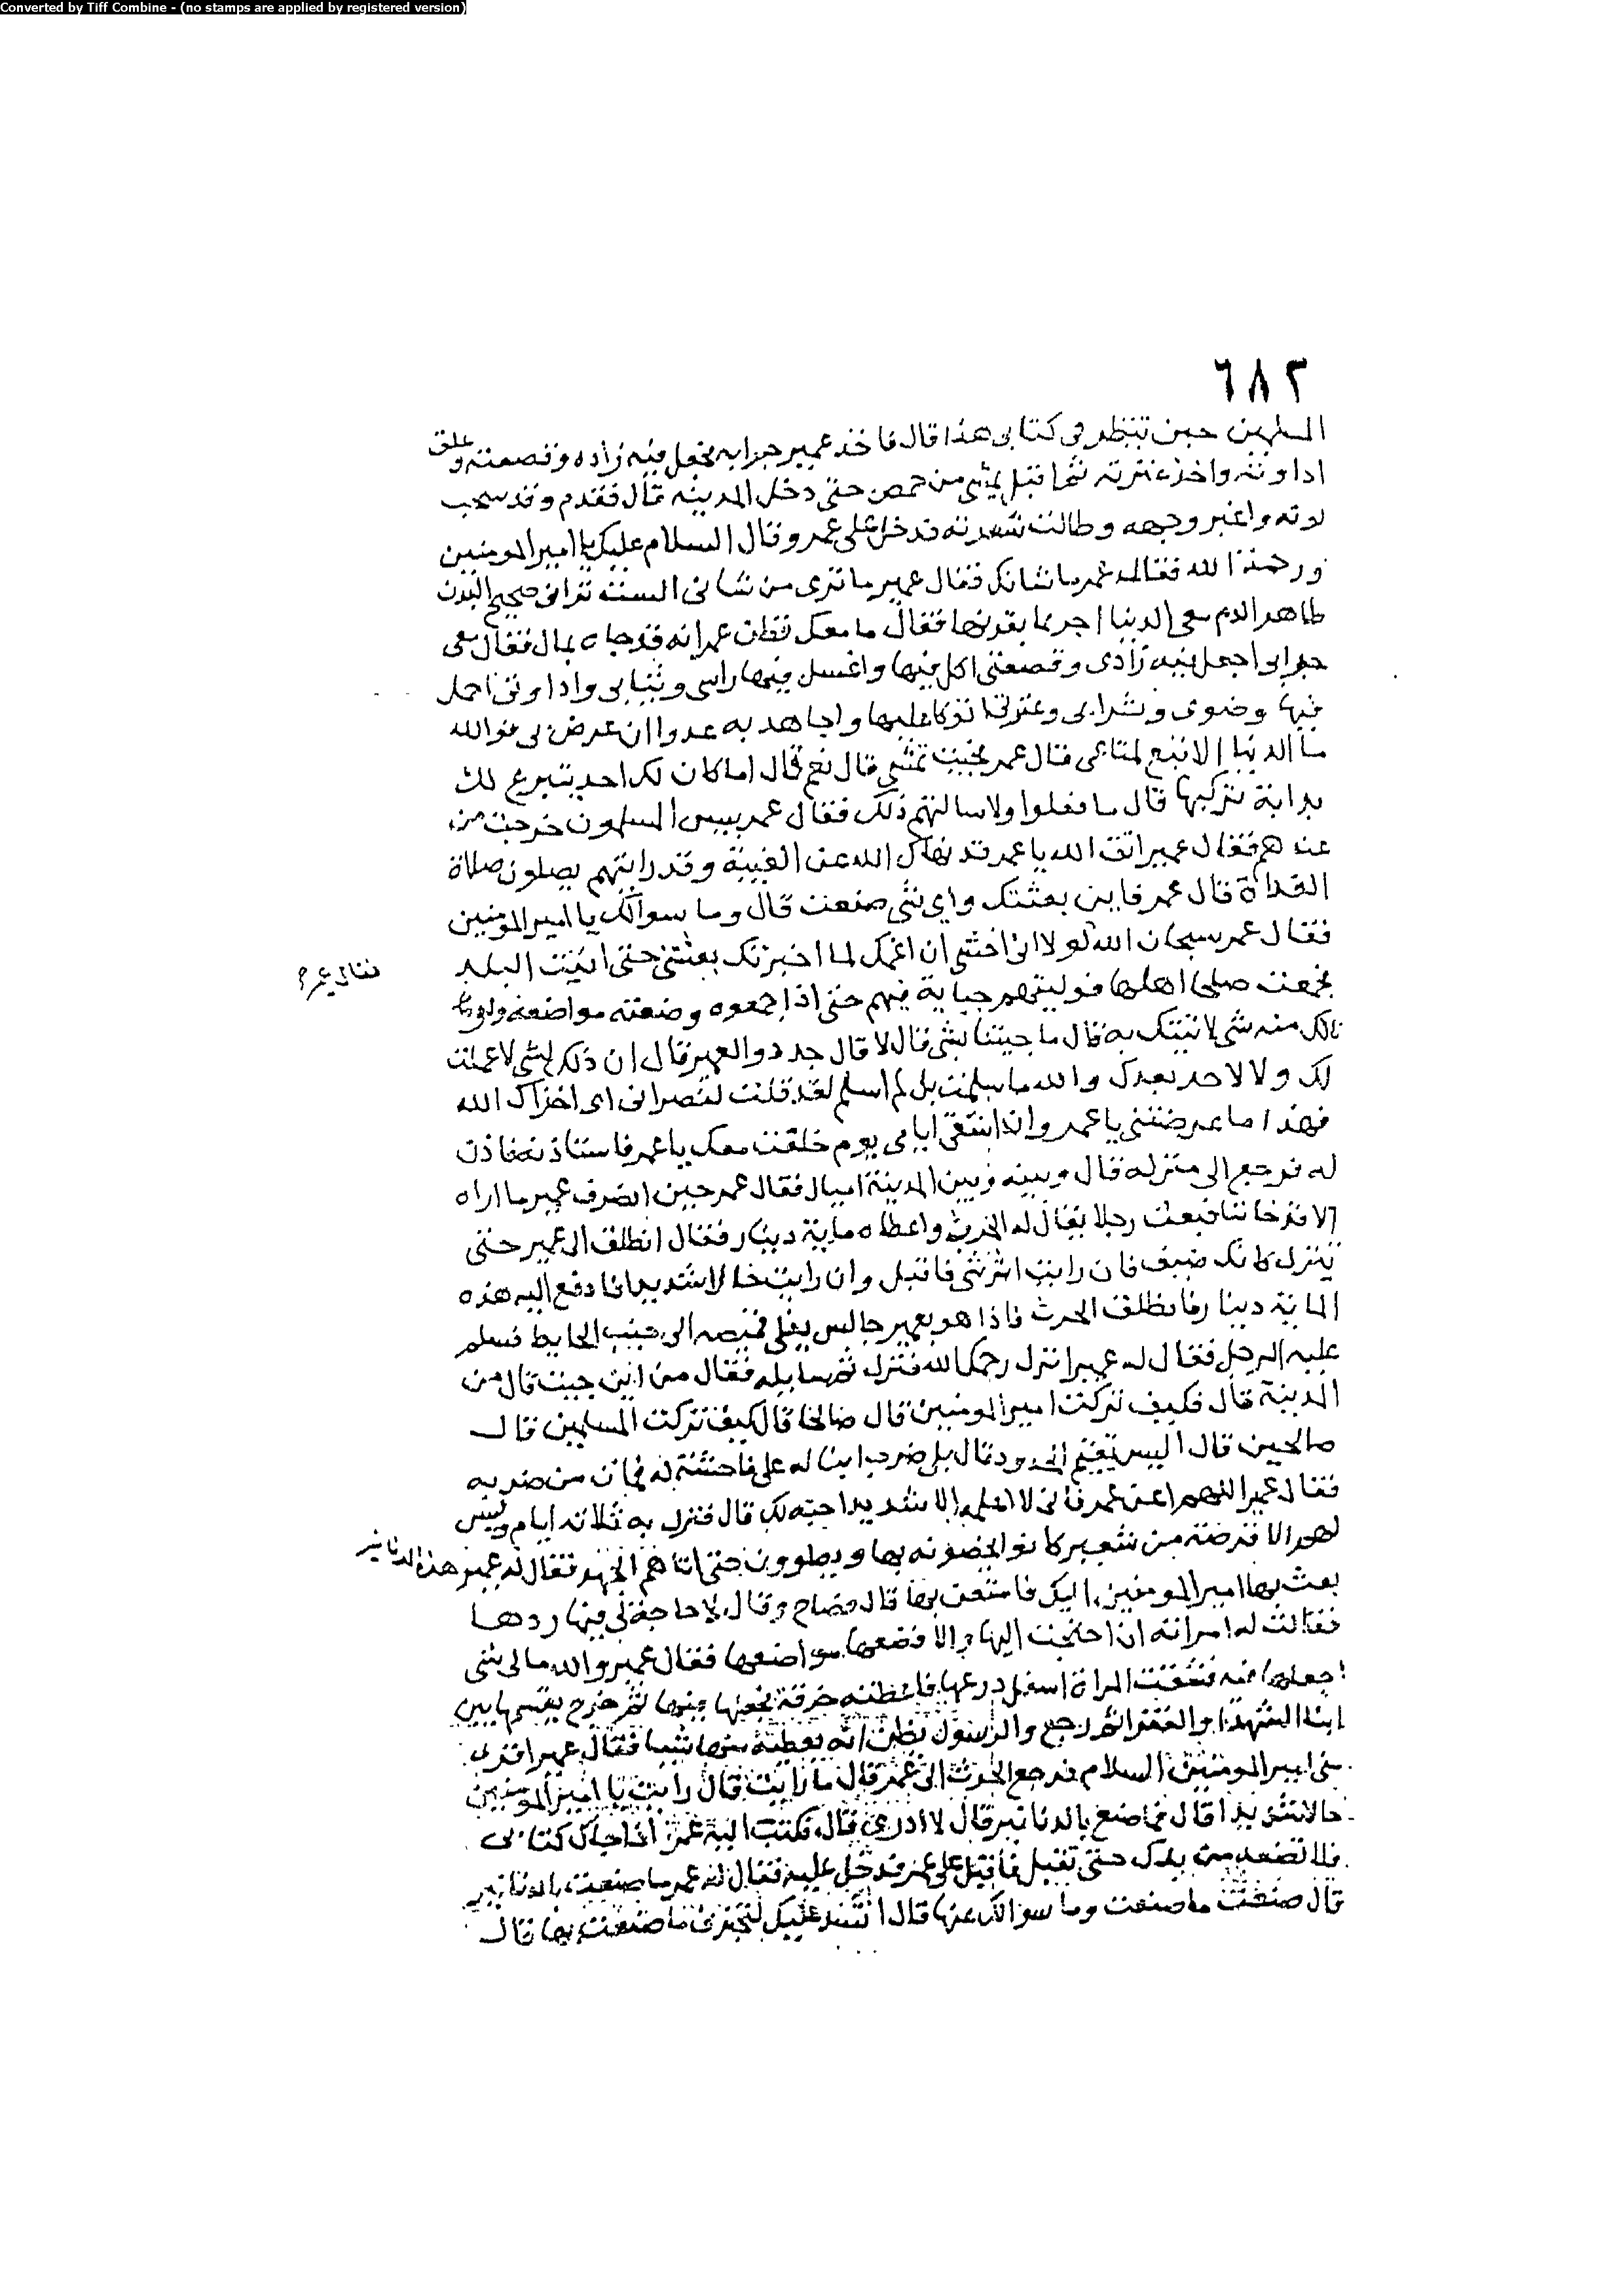 Converted by Tiff Combine - (no stamps are applied by registered version)
٦٨٢
المسلمين حين تنظر فى كتابى هذا قال فاخذ عمير جرابه فجعل فيه زاده وقصعته وعلق
اداوته واخذ عنزته ثم اقبل يمشى من حمص حتى دخل المدينه قال فقدم وقد سحب
لونه واغبر وجهه وطالت شعرته فدخل على عمر وقال السلام عليك يا امير المومنين
ورحمة الله فقال له عمر ما شانك فقال عمير ما ترى من شانى الست ترانى صحيح البدن
طاهر الدم معى الدنيا اجرها بقرنها فقال ما معك فظن عمر انه قد جاه بمال فقال معى
جرابى اجعل فيه زادى وقصعتى اكل فيها واغسل فيها راسى وثيابى واداوتى احمل
فيها وضوى وشرابى وعنزتى اتوكا عليها واجاهد به عدوا ان عرض لى فوالله
ما الدنيا الا تبع لمتاعى قال عمر فجيت تمشى قال نعم قال اما كان لك احد يتبرع لك
بدابة تركبها قال ما فعلوا ولا سالتهم ذلك فقال عمر بيس المسلمون خرجت من
عندهم فقال عمير اتق الله يا عمر قد نهاك الله عن الغيبة وقد رايتهم يصلون صلاة
الغداة قال عمر فاين بعثتك واي شى صنعت قال وما سوالك يا امير المومنين
فقال عمر سبحان الله لولا انى اخشى ان اغمك لما اخبرتك بعثتنى حتى اتيت البلد
فقال عمير ؟
فجمعت صلحا اهلها فوليتهم جباية فيهم حتى اذا جمعوه وضعته مواضعه ولو
نالك منه شى لاتيتك به قال ما جيتنا بشى قال لا قال جددوا لعمير قال ان ذلك لشى لا عملت
لك ولا لاحد بعدك والله ما سلمت بل لم اسلم لقد قلت لنصرانى اى اخزاك الله
فهذا ما عرضتنى يا عمر وان اشقى ايامى يوم خلقت معك يا عمر فاستاذنه فاذن
له فرجع الى منزله قال وبينه وبين المدينة اميال فقال عمر حين انصرف عمير ما اراه
الا قد خاننا فبعث رجلا يقال له الحرث واعطاه ماية دينار فقال انطلق الى عمير حتى
تنزل كانك ضيف فان رايت اثر شى فاقبل وان رايت حالا شديدا فادفع اليه هذه
الماية دينار فانطلق الحرث فاذا هو بعمير جالس يفلى قميصه الى جنب الحايط فسلم
عليه الرجل فقال له عمير انزل رحمك الله فنزل ثم سايله فقال من اين جيت قال من
المدينة قال فكيف تركت امير المومنين قال صالحا قال كيف تركت المسلمين قال
صالحين قال اليس يقيم الحدود قال بلى ضرب ابنا له على فاحشة له فمات من ضربه
فقال عمير اللهم اعن عمر فانى لا اعلمه الا شديدا حبه لك قال فنزل به ثلاثه ايام وليس
لهم الا قرصة من شعير كانوا يخصونه بها ويطوون حتى اتاهم الجهد فقال له عمير هذه الدنانير
بعث بها امير المومنين اليك فاستعن بها قال فصاح وقال لا حاجة لى فيها ردها
فقالت له امراته ان احتجت اليها والا فضعها مواضعها فقال عمير والله ما لى شى
اجعلها فيه فشقت المراة اسفل درعها فاعطته خرقة فجعلها فيها ثم خرج يقسمها بين
ابنا الشهدا والفقرا ثم رجع والرسول يظن انه يعطيه منها شيا فقال عمير اقرى
منى امير المومنين السلام فرجع الحرث الى عمر قال ما رايت قال رايت يا امير المومنين
حالا شديدا قال فما صنع بالدنانير قال لا ادرى قال فكتب اليه عمر اذا جاك كتابى
فلا تضعه من يدك حتى تقبل فاقبل على عمر فدخل عليه فقال له عمر ما صنعت بالدنانير
قال صنعت ما صنعت وما سوالك عنها قال انشد عليك لتخبرنى ما صنعت بها قال